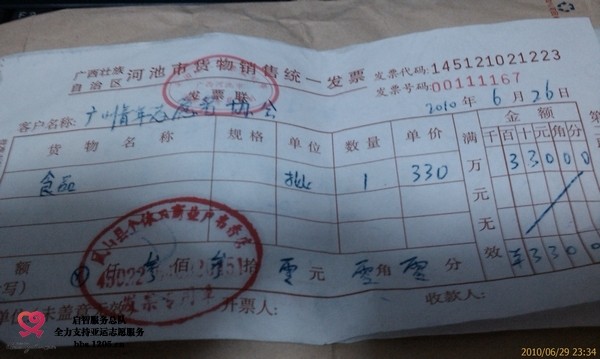 广西壮族自治区 河池市货物销售统一发票 发票代码:145121021223
发票联 发票号码:00111167
客户名称: 广州青年志愿者协会 2010 年 6 月 26 日
货物名称 规格 单位 数量 单价 满万元无效 金额
千百十元角分
食品 批 1 330 33000
额 叁佰叁拾零元零角零分 ¥330
写)
未盖章无效 开票人: 收款人:
发票专用章
启智服务总队
全力支持亚运志愿服务
bbs.1205.cn
2010/06/29 23:34